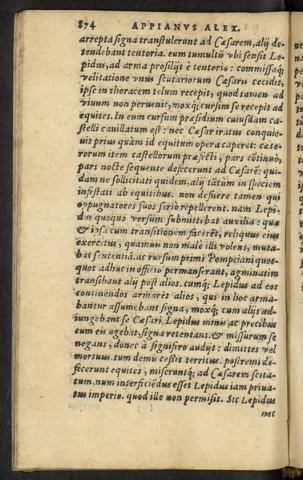 874 APPIANVS ALEX.
arrepta signa transtulerunt ad Cæsarem, alij de-
tendebant tentoria. eum tumultũ vbi sensit Le-
pidus, ad arma prosilijt è tentorio: commissaq́;
velitatione vnus scutariorum Cæsaris cecidit,
ipse in thoracem telum recepit, quod tamen ad
viuum non peruenit, moxq́; cursim se recepit ad
equites. In eum cursum præsidium cuiusdam ca-
stelli cauillatum est: nec Cæsar iratus conquie-
uit prius quàm id equitum opera caperet: cete-
rorum item castellorum præfecti, pars cõtinuò,
pars nocte sequente defecerunt ad Cæsarẽ: qui-
dam ne sollicitati quidem, alij tãtùm in speciem
infestati ab equitibus. non defuere tamen qui
oppugnatores suos serio repellerent. nam Lepi-
dus quoquo versum submittebat auxilia: quæ
& ipsa cum transitionem facerẽt, reliquus eius
exercitus, quamuis non malè illi volens, muta-
bat sententiã. ac rursum primi Pompeiani quot-
quot adhuc in officio permanserant, agminatim
transibant alij post alios. cumq́; Lepidus ad eos
continendos armaret alios, qui in hoc arma-
bantur assumebant signa, moxq́; cum alijs ad-
iungebant se Cæsari. Lepidus minis ac precibus
cum eis agebat, signa retentans, & missurum se
negans, donec à signifero audijt: dimittes vel
mortuus. tum demũ cessit territus. postremi de-
fecerunt equites, miseruntq́; ad Cæsarem scita-
tum, num interficiẽdus esset Lepidus iam priua-
tus imperio. quod ille non permisit. Sic Lepidus